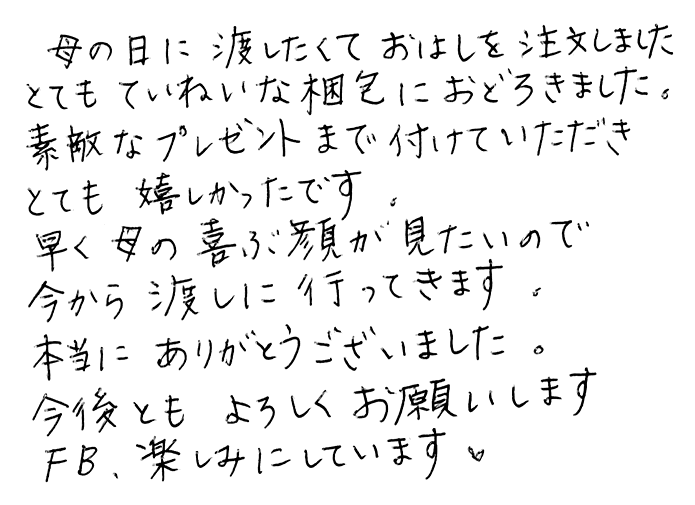 母の日に渡したくておはしを注文しました
とてもていねいな梱包におどろきました。
素敵なプレゼントまで付けていただき
とても嬉しかったです。
早く母の喜ぶ顔が見たいので
今から渡しに行ってきます。
本当にありがとうございました。
今後ともよろしくお願いします
FB、楽しみにしています♥